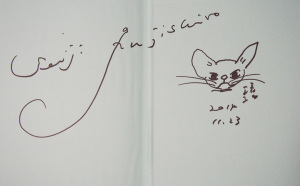 Seiji Fujishiro
2014
11.23